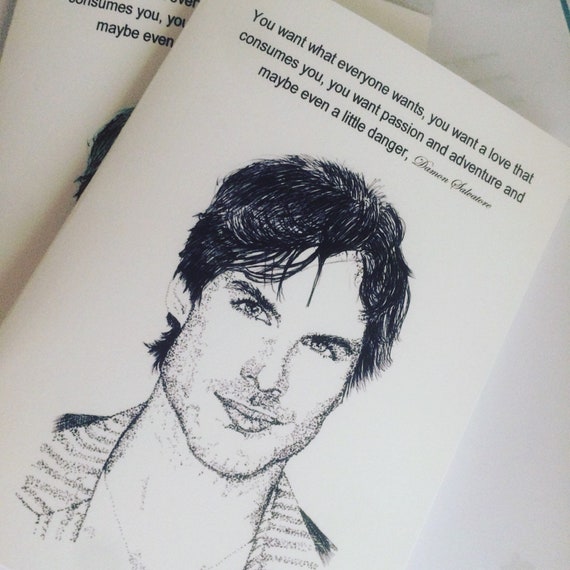 consumes you, you
maybe even
You want what everyone wants, you want a love that
consumes you, you want passion and adventure and
maybe even a little danger, Damon Salvatore